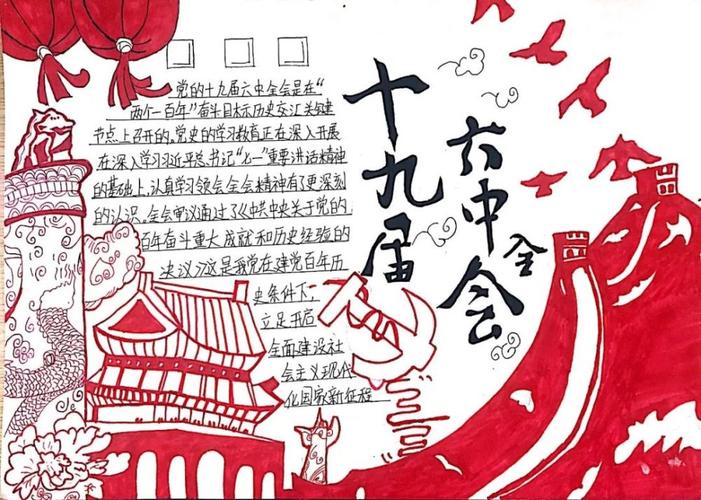 党的十九届六中全会是在“
两个一百年”奋斗目标历史交汇关键
节点上召开的,党史的学习教育正在深入开展
在深入学习习近平总书记“七一”重要讲话精神
的基础上,认真学习领会全会精神有了更深刻
的认识,全会审议通过了《中共中央关于党的
百年奋斗重大成就和历史经验的
决议》这是我党在建党百年历
史条件下,
立足开启
全面建设社
会主义现代
化国家新征程
十九届
六中全会